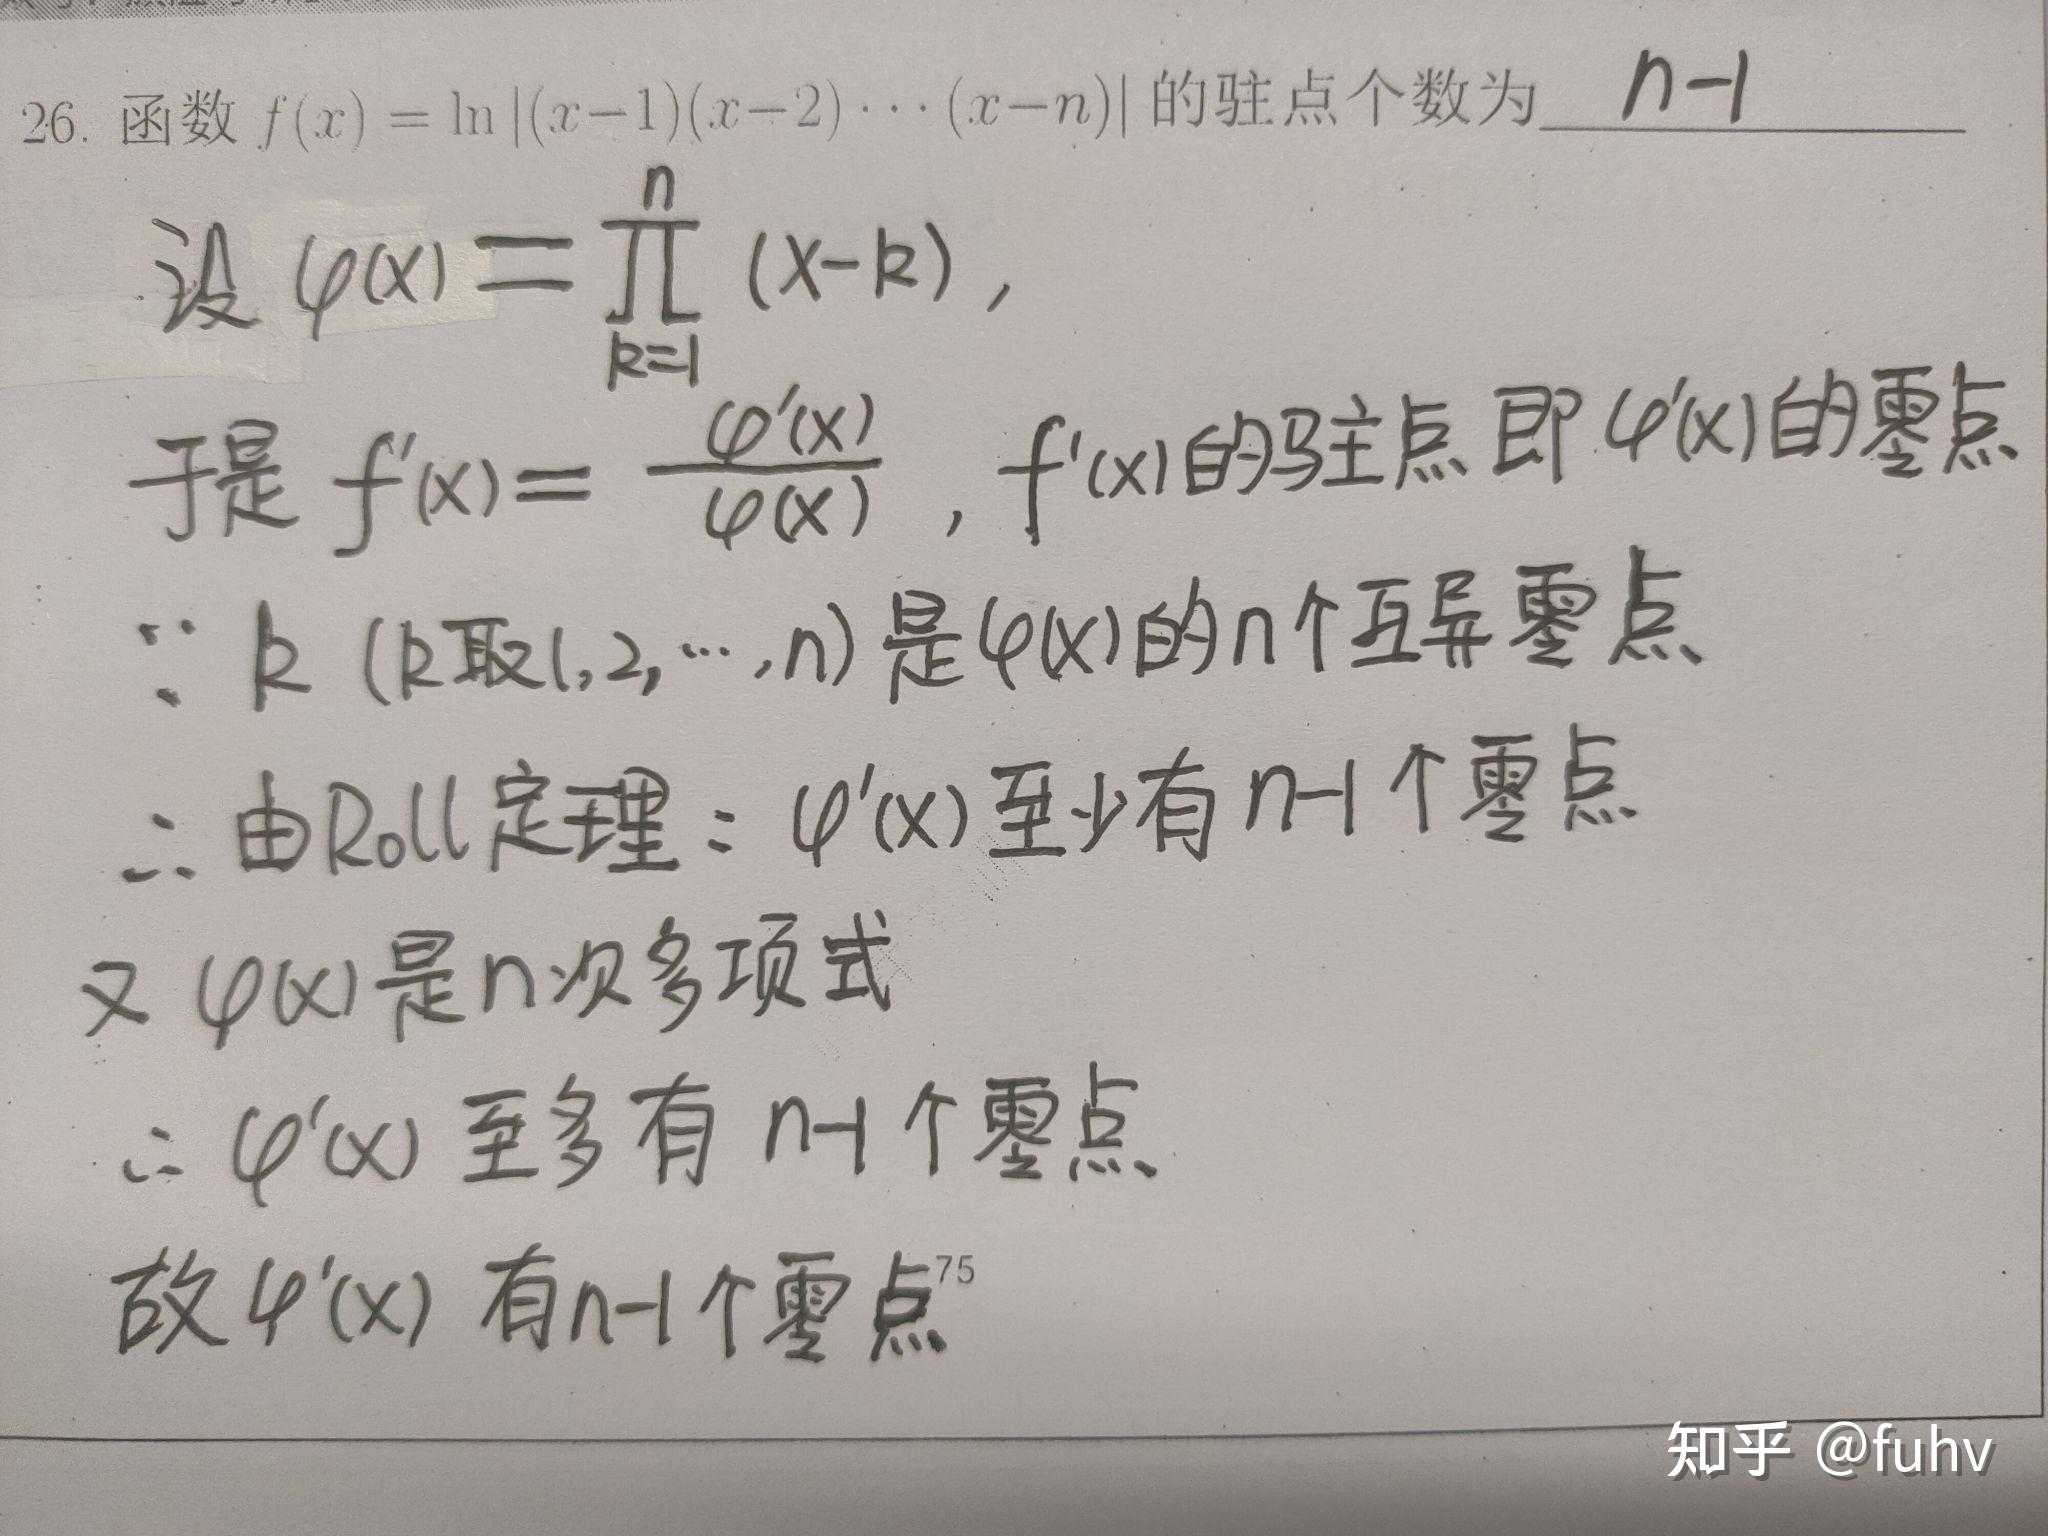 26. 函数 f(x) = ln |(x−1)(x−2)···(x−n)| 的驻点个数为 n-1
设 φ(x) = ∏_{k=1}^{n} (x-k) ,
于是 f'(x) = φ'(x)/φ(x) , f'(x) 的驻点即 φ'(x) 的零点
∵ k (k取1,2,…,n) 是φ(x)的n个互异零点
∴ 由Roll定理: φ'(x) 至少有 n-1 个零点
又 φ(x) 是n次多项式
∴ φ'(x) 至多有 n-1 个零点
故 φ'(x) 有n-1个零点
75
知乎 @fuhv